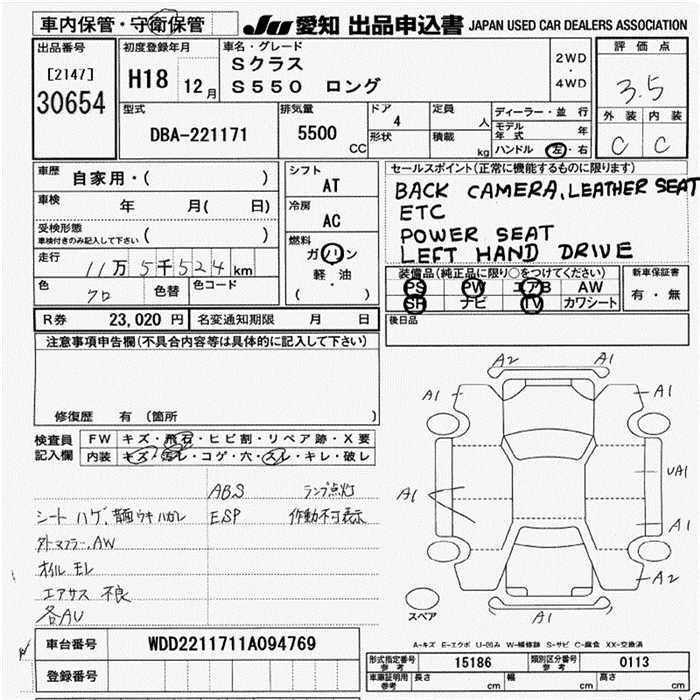 車内保管・守衛保管 JU 愛知 出品申込書 JAPAN USED CAR DEALERS ASSOCIATION
出品番号 初度登録年月 車名・グレード 評価点
[2147] H18 12月 Sクラス 2WD
30654 S550 ロング ・ 4WD 3.5
型式 排気量 ドア 4 定員 人 ディーラー・並行 外装 内装
DBA-221171 5500 CC 形状 積載 kg モデル年式 年 C C
ハンドル 左・右
車歴 自家用・( ) シフト AT セールスポイント(正常に機能するものに限ります)
車検 年 月( 日) 冷房 AC BACK CAMERA, LEATHER SEAT
ETC
受検形態 車検付きのみ記入して下さい ( ) POWER SEAT
LEFT HAND DRIVE
走行 11万5千524km 燃料 ガソリン
軽・油
( )
色 クロ 色替 色コード
装備品(純正品に限り○をつけてください) 新車保証書
PS PW エアB AW 有・無
SR ナビ TV カワシート
R券 23,020円 名変通知期限 月 日 後日品
注意事項申告欄(不具合内容等は具体的に記入して下さい)
修復歴 有 (箇所 )
検査員記入欄 FW キズ・飛石・ヒビ割・リペア跡・X要
内装 キズ・汚レ・コゲ・穴・スレ・キレ・破レ
ABS ランプ点灯
シートハゲ、 ウキハガレ ESP 作動不可表示
外マフラー、AW
オイルモレ
エアサス 不良
各AU
A2 A1
A1 A1
A1 UA1
A1
A2
スペア A1
A-キズ E-エクボ U-凹み W-補修跡 S-サビ C-腐食 XX-交換済
車台番号 WDD2211711A094769
登録番号
形式指定番号 参考 15186 類別区分番号 参考 0113
車庫証明用 参考 長さ cm 幅 cm 高さ cm